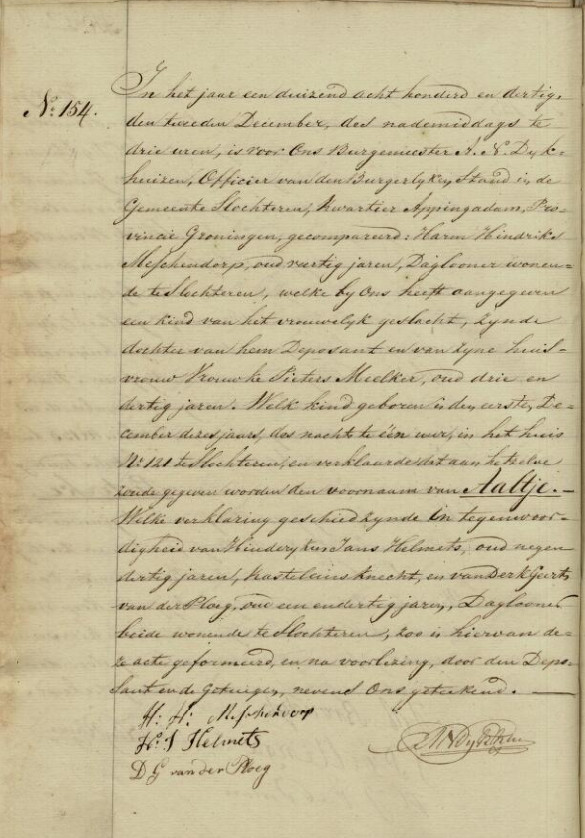 In het jaar een duizend acht honderd en dertig,
N: 154.
den tweeden December, des nademiddags te
drie uren, is voor Ons Burgemeester A. N. Dyk-
huizen, Officier van den Burgerlyken Stand in de
Gemeente Slochteren, kwartier Appingadam, Pro-
vincie Groningen, gecompareerd: Harm Hindriks
Meschendorp, oud veertig jaren, Daglooner wonen-
de te Slochteren, welke by Ons heeft aangegeven
een kind van het vrouwelyk geslacht, zynde
dochter van hem Deposant en van zyne huis-
vrouw Vrouwke Pieters Meelker, oud drie en
dertig jaren. Welk kind geboren is den eersten De-
cember dezes jaars, des nachts te één uur, in het huis
N: 121 te Slochteren, en verklaarde dat aan hetzelve
zoude gegeven worden den voornaam van Aaltje. —
Welke verklaring geschied zynde in tegenwoor-
digheid van Hinderykus Jans Helmets, oud negen
dertig jaren, kasteleins knecht, en van Derk Geerts
van der Ploeg, oud een en dertig jaren, Daglooner
beide wonende te Slochteren, zoo is hiervan de-
ze acte geformeerd, en na voorlezing, door den Depo-
sant en de Getuigen, nevens Ons geteekend. —
H: H: Meschendorp
H: J Helmets
ANDykhuizen
D G van der Ploeg